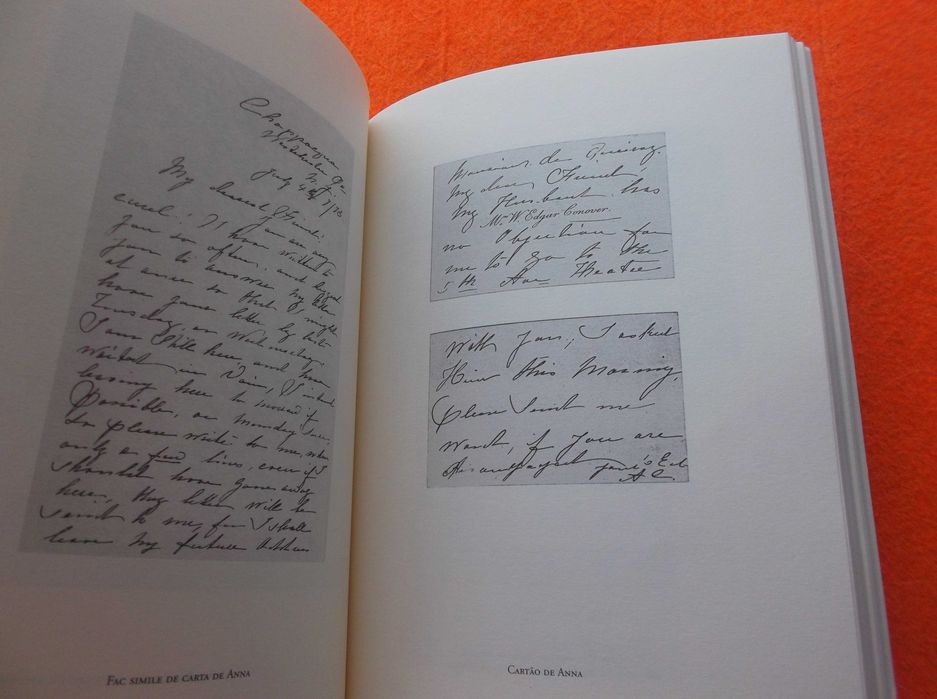 Chappaqua
Westchester Co.
N.Y.
July 4th
My dear
You are
I have written to
you so often, and begged
you to answer my letter
at once so that I might
have your letter by last
Tuesday, or Wednesday,
I am still here, and have
waited in vain, I intend
leaving here to morrow if
Possible, or Monday sure,
So please write to me, when
only a few lines, even if I
should have gone away
here, they letter will be
sent to me, for I shall
leave my future address
FAC SIMILE DE CARTA DE ANNA
Monsieur de Queiroz.
My dear Friend,
My Husband has
Mrs. W. Edgar Conover.
no Objection for
me to go to the
5th Ave Theatre
With you, I asked
Him this Morning,
Please send me
Word, if You are
A.C.
CARTÃO DE ANNA